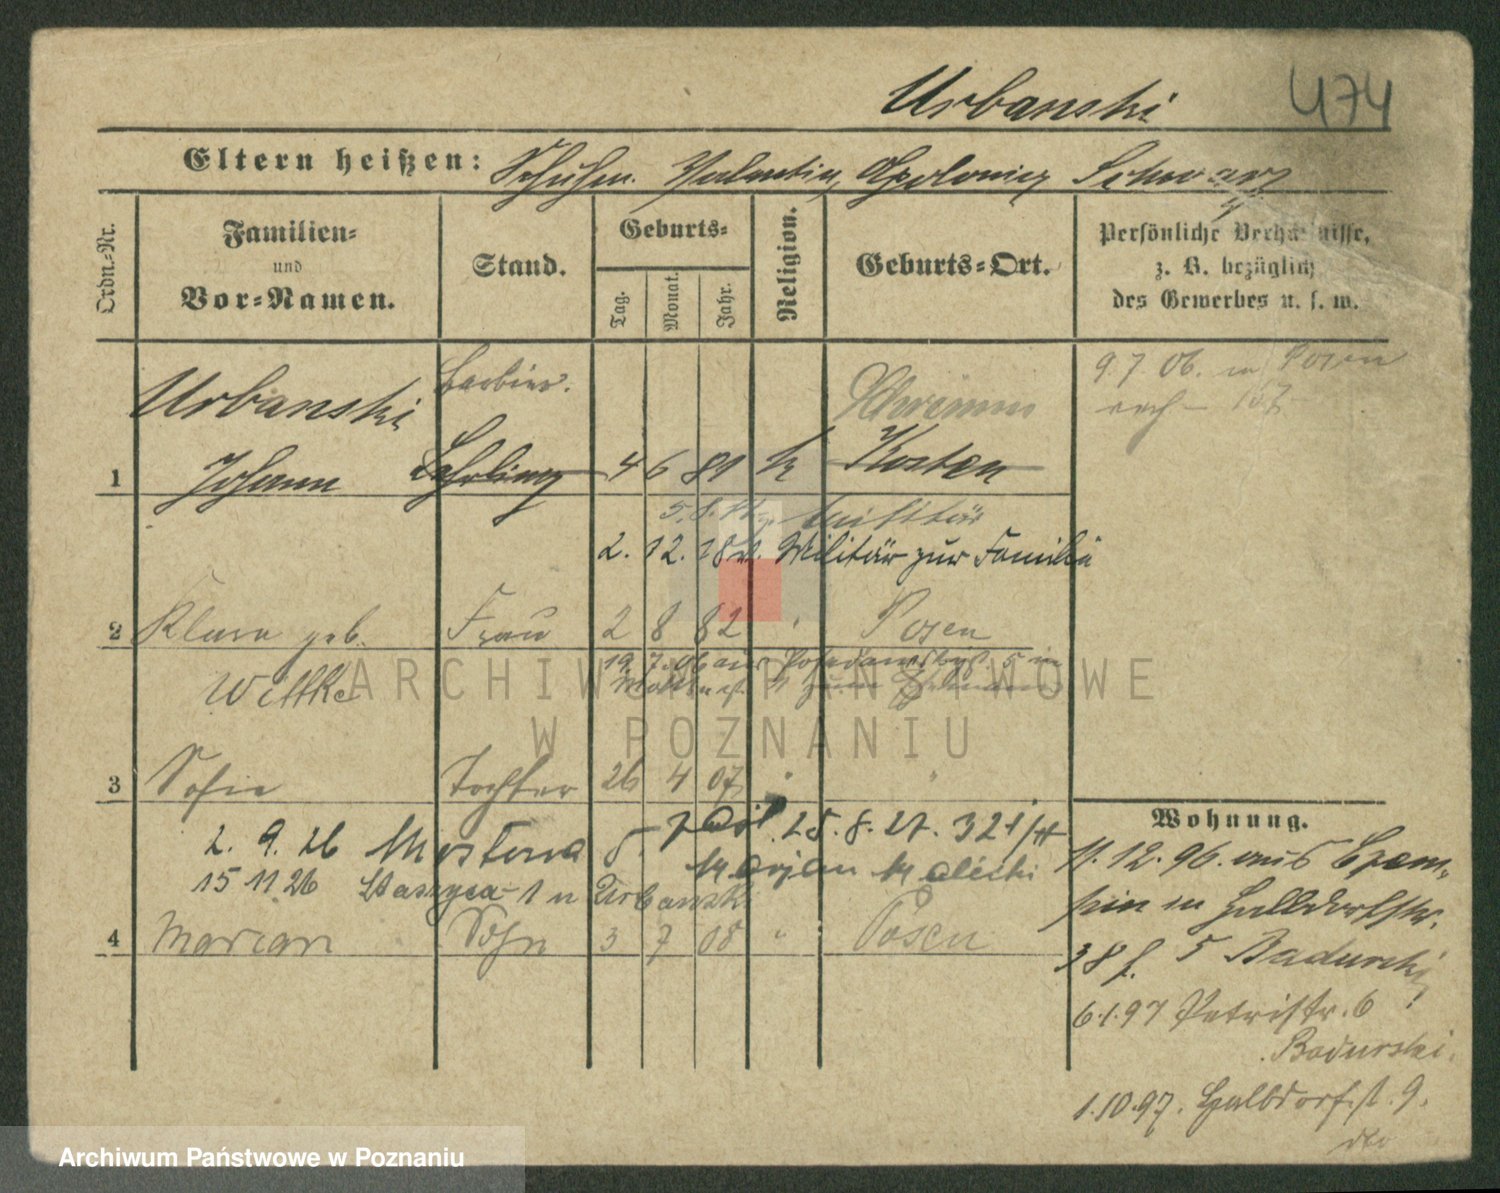 Urbanski 474
Eltern heißen: Valentin, Apolonia
Ordn.-Nr.
Familien-
und
Vor-Namen.
Stand.
Geburts-
Tag.
Monat.
Jahr.
Religion.
Geburts-Ort.
Persönliche Verhältnisse,
z. B. bezüglich
des Gewerbes u. s. w.
Urbanski Barbier. Schrimm 9.7.06. in Posen
1 Johann Lehrling 4 6 81 k Kosten
5.8. Militär
2. 12. 18 v. Militär zur Familie
2 Klara geb. Frau 2 8 82 " Posen
Wittke
19.7.06 aus
3 Sofie Tochter 26 4 07 " "
Wohnung.
2. 9. 26 25. 8. 27. 321/
Marjan Malecki
15 11 26 Staszyca 1 u Urbanski
11.12.96. aus
in Halbdorfstr.
4 Marian Sohn 3 7 08 " Posen
38 f. 5 Badurski
6.1.97 Petristr. 6
Badurski.
1.10.97. Halbdorfst. 9.
dto
ARCHIWUM PAŃSTWOWE
W POZNANIU
Archiwum Państwowe w Poznaniu